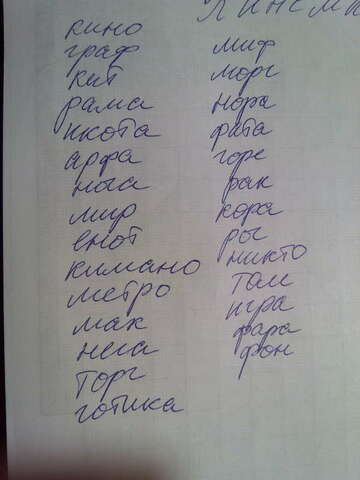 кино
граф
кит
рама
икота
арфа
нога
мир
енот
кимано
метро
мак
нега
торг
готика
миф
морг
нора
фата
горе
рак
кора
никто
том
игра
фара
фон